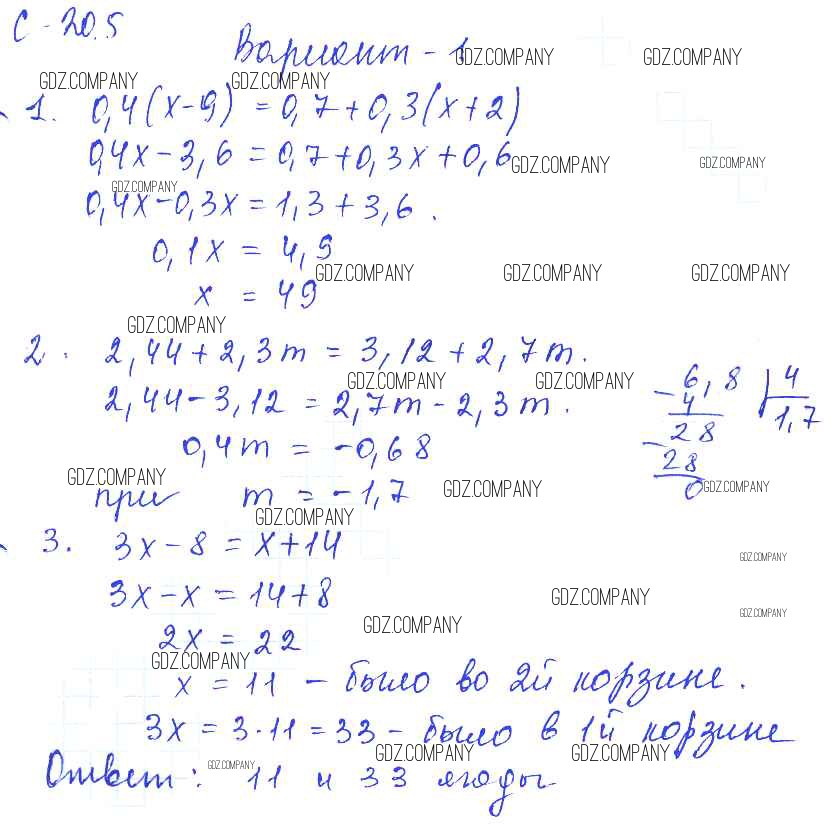 С - 20.5
Вариант - 1
GDZ.COMPANY GDZ.COMPANY
GDZ.COMPANY GDZ.COMPANY
1. 0,4(x-9) = 0,7+0,3(x+2)
0,4x-3,6 = 0,7+0,3x+0,6
GDZ.COMPANY GDZ.COMPANY
GDZ.COMPANY
0,4x-0,3x = 1,3+3,6.
0,1x = 4,9
GDZ.COMPANY GDZ.COMPANY GDZ.COMPANY
x = 49
GDZ.COMPANY
2. 2,44+2,3m = 3,12+2,7m.
GDZ.COMPANY GDZ.COMPANY
2,44-3,12 = 2,7m-2,3m.
0,4m = -0,68
GDZ.COMPANY
при m = -1,7
-6,8 | 4
4 1,7
-28
28
0
GDZ.COMPANY GDZ.COMPANY
GDZ.COMPANY
3. 3x-8 = x+14
GDZ.COMPANY
3x-x = 14+8
GDZ.COMPANY
GDZ.COMPANY
2x = 22
GDZ.COMPANY
GDZ.COMPANY
x = 11 - было во 2й корзине.
3x = 3·11 = 33 - было в 1й корзине
GDZ.COMPANY GDZ.COMPANY
GDZ.COMPANY
Ответ: 11 и 33 ягоды